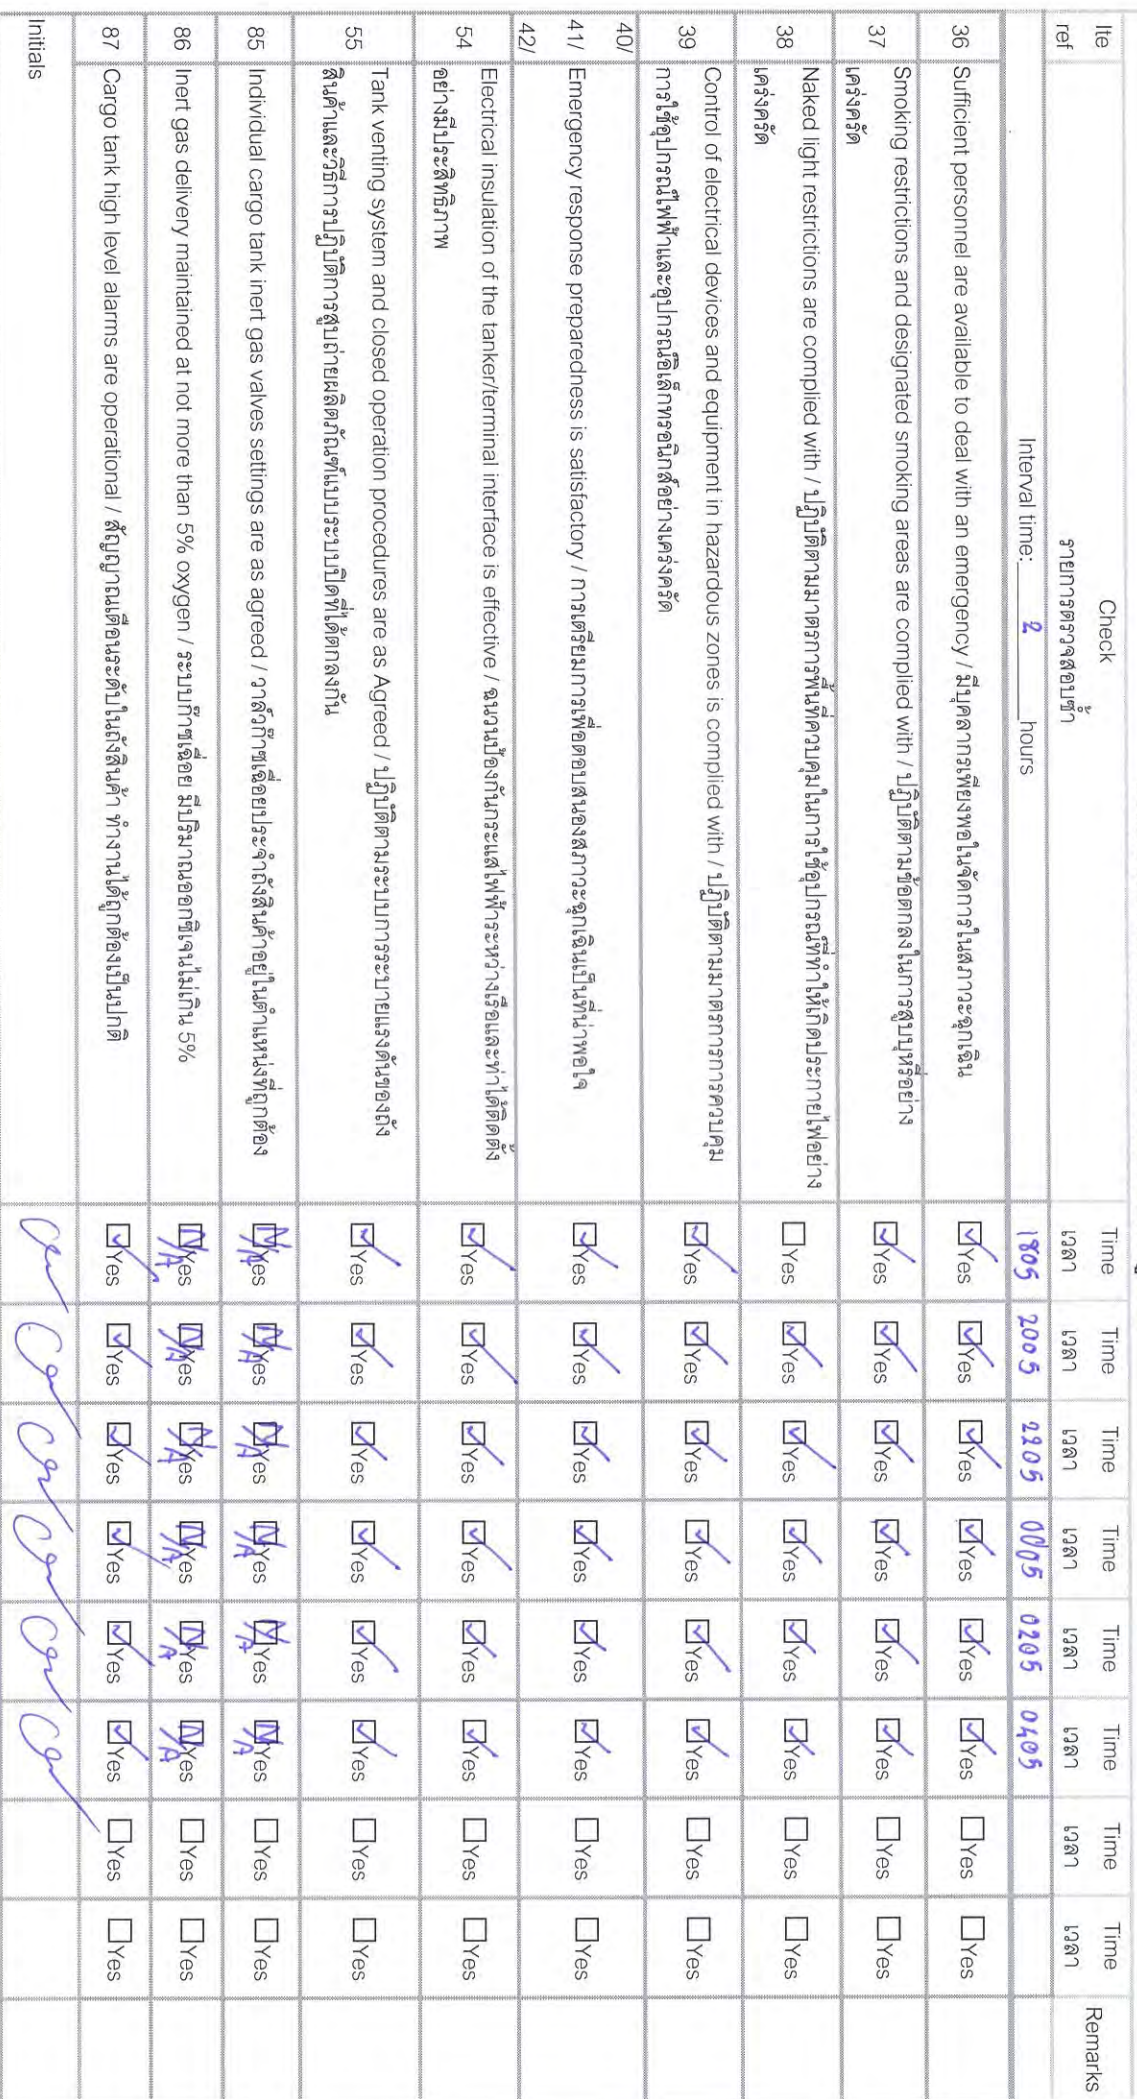 Ite ref Check รายการตรวจสอบซ้ำ Time เวลา Time เวลา Time เวลา Time เวลา Time เวลา Time เวลา Time เวลา Time เวลา Remarks
Interval time: 2 hours 1805 2005 2205 0005 0205 0405
36 Sufficient personnel are available to deal with an emergency / มีบุคลากรเพียงพอในจัดการในสภาวะฉุกเฉิน ☑Yes ☑Yes ☑Yes ☑Yes ☑Yes ☑Yes ☐Yes ☐Yes
37 Smoking restrictions and designated smoking areas are complied with / ปฏิบัติตามข้อตกลงในการสูบบุหรี่อย่าง
เคร่งครัด ☑Yes ☑Yes ☑Yes ☑Yes ☑Yes ☑Yes ☐Yes ☐Yes
38 Naked light restrictions are complied with / ปฏิบัติตามมาตรการพื้นที่ควบคุมในการใช้อุปกรณ์ที่ทำให้เกิดประกายไฟอย่าง
เคร่งครัด ☐Yes ☑Yes ☑Yes ☑Yes ☑Yes ☑Yes ☐Yes ☐Yes
39 Control of electrical devices and equipment in hazardous zones is complied with / ปฏิบัติตามมาตรการการควบคุม
การใช้อุปกรณ์ไฟฟ้าและอุปกรณ์อิเล็กทรอนิกส์อย่างเคร่งครัด ☑Yes ☑Yes ☑Yes ☑Yes ☑Yes ☑Yes ☐Yes ☐Yes
40/
41/ Emergency response preparedness is satisfactory / การเตรียมการเพื่อตอบสนองสภาวะฉุกเฉินเป็นที่น่าพอใจ ☑Yes ☑Yes ☑Yes ☑Yes ☑Yes ☑Yes ☐Yes ☐Yes
42/
54 Electrical insulation of the tanker/terminal interface is effective / ฉนวนป้องกันกระแสไฟฟ้าระหว่างเรือและท่าได้ติดตั้ง
อย่างมีประสิทธิภาพ ☑Yes ☑Yes ☑Yes ☑Yes ☑Yes ☑Yes ☐Yes ☐Yes
55 Tank venting system and closed operation procedures are as Agreed / ปฏิบัติตามระบบการระบายแรงดันของถัง
สินค้าและวิธีการปฏิบัติการสูบถ่ายผลิตภัณฑ์แบบระบบปิดที่ได้ตกลงกัน ☑Yes ☑Yes ☑Yes ☑Yes ☑Yes ☑Yes ☐Yes ☐Yes
85 Individual cargo tank inert gas valves settings are as agreed / วาล์วก๊าซเฉื่อยประจำถังสินค้าอยู่ในตำแหน่งที่ถูกต้อง N/A Yes N/A Yes N/A Yes N/A Yes N/A Yes N/A Yes ☐Yes ☐Yes
86 Inert gas delivery maintained at not more than 5% oxygen / ระบบก๊าซเฉื่อย มีปริมาณออกซิเจนไม่เกิน 5% N/A Yes N/A Yes N/A Yes N/A Yes N/A Yes N/A Yes ☐Yes ☐Yes
87 Cargo tank high level alarms are operational / สัญญาณเตือนระดับในถังสินค้า ทำงานได้ถูกต้องเป็นปกติ ☑Yes ☑Yes ☑Yes ☑Yes ☑Yes ☑Yes ☐Yes ☐Yes
Initials